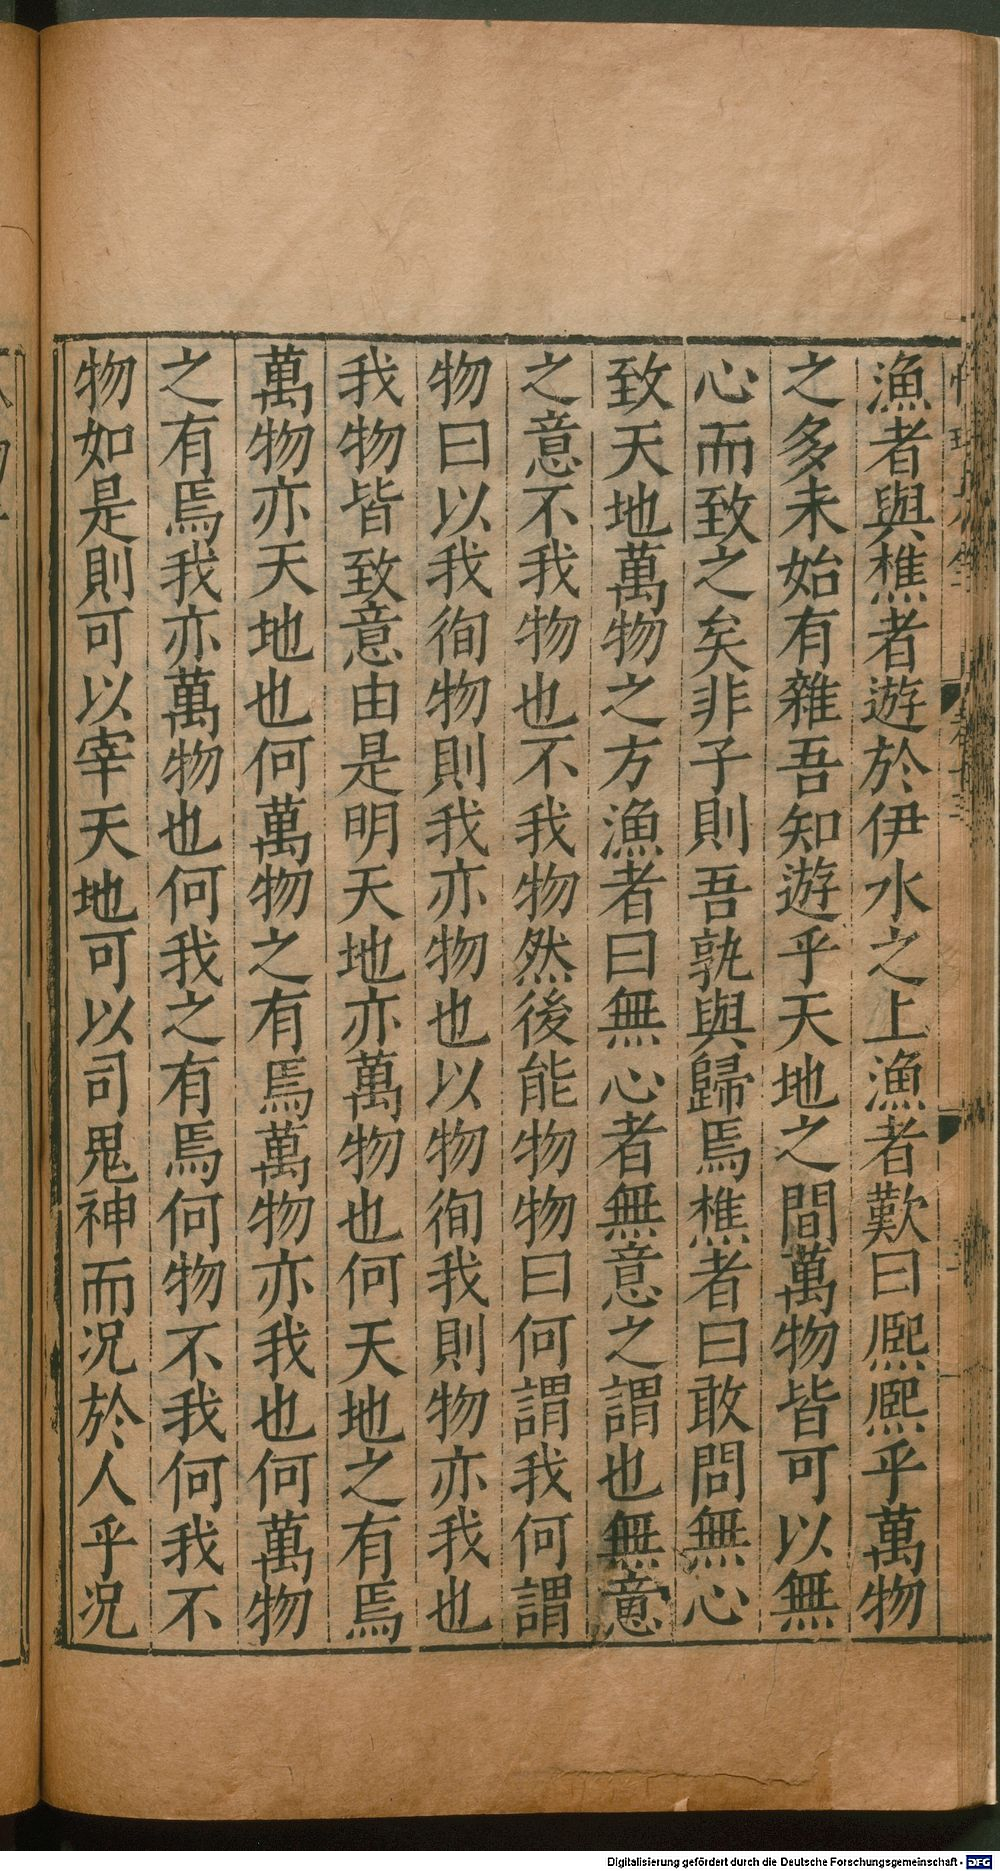 漁者與樵者遊於伊水之上漁者歎曰熈熈乎萬物
之多未始有雜吾知遊乎天地之間萬物皆可以無
心而致之矣非子則吾孰與歸焉樵者曰敢問無心
致天地萬物之方漁者曰無心者無意之謂也無意
之意不我物也不我物然後能物物曰何謂我何謂
物曰以我徇物則我亦物也以物徇我則物亦我也
我物皆致意由是明天地亦萬物也何天地之有焉
萬物亦天地也何萬物之有焉萬物亦我也何萬物
之有焉我亦萬物也何我之有焉何物不我何我不
物如是則可以宰天地可以司鬼神而况於人乎况
Digitalisierung gefördert durch die Deutsche Forschungsgemeinschaft - DFG